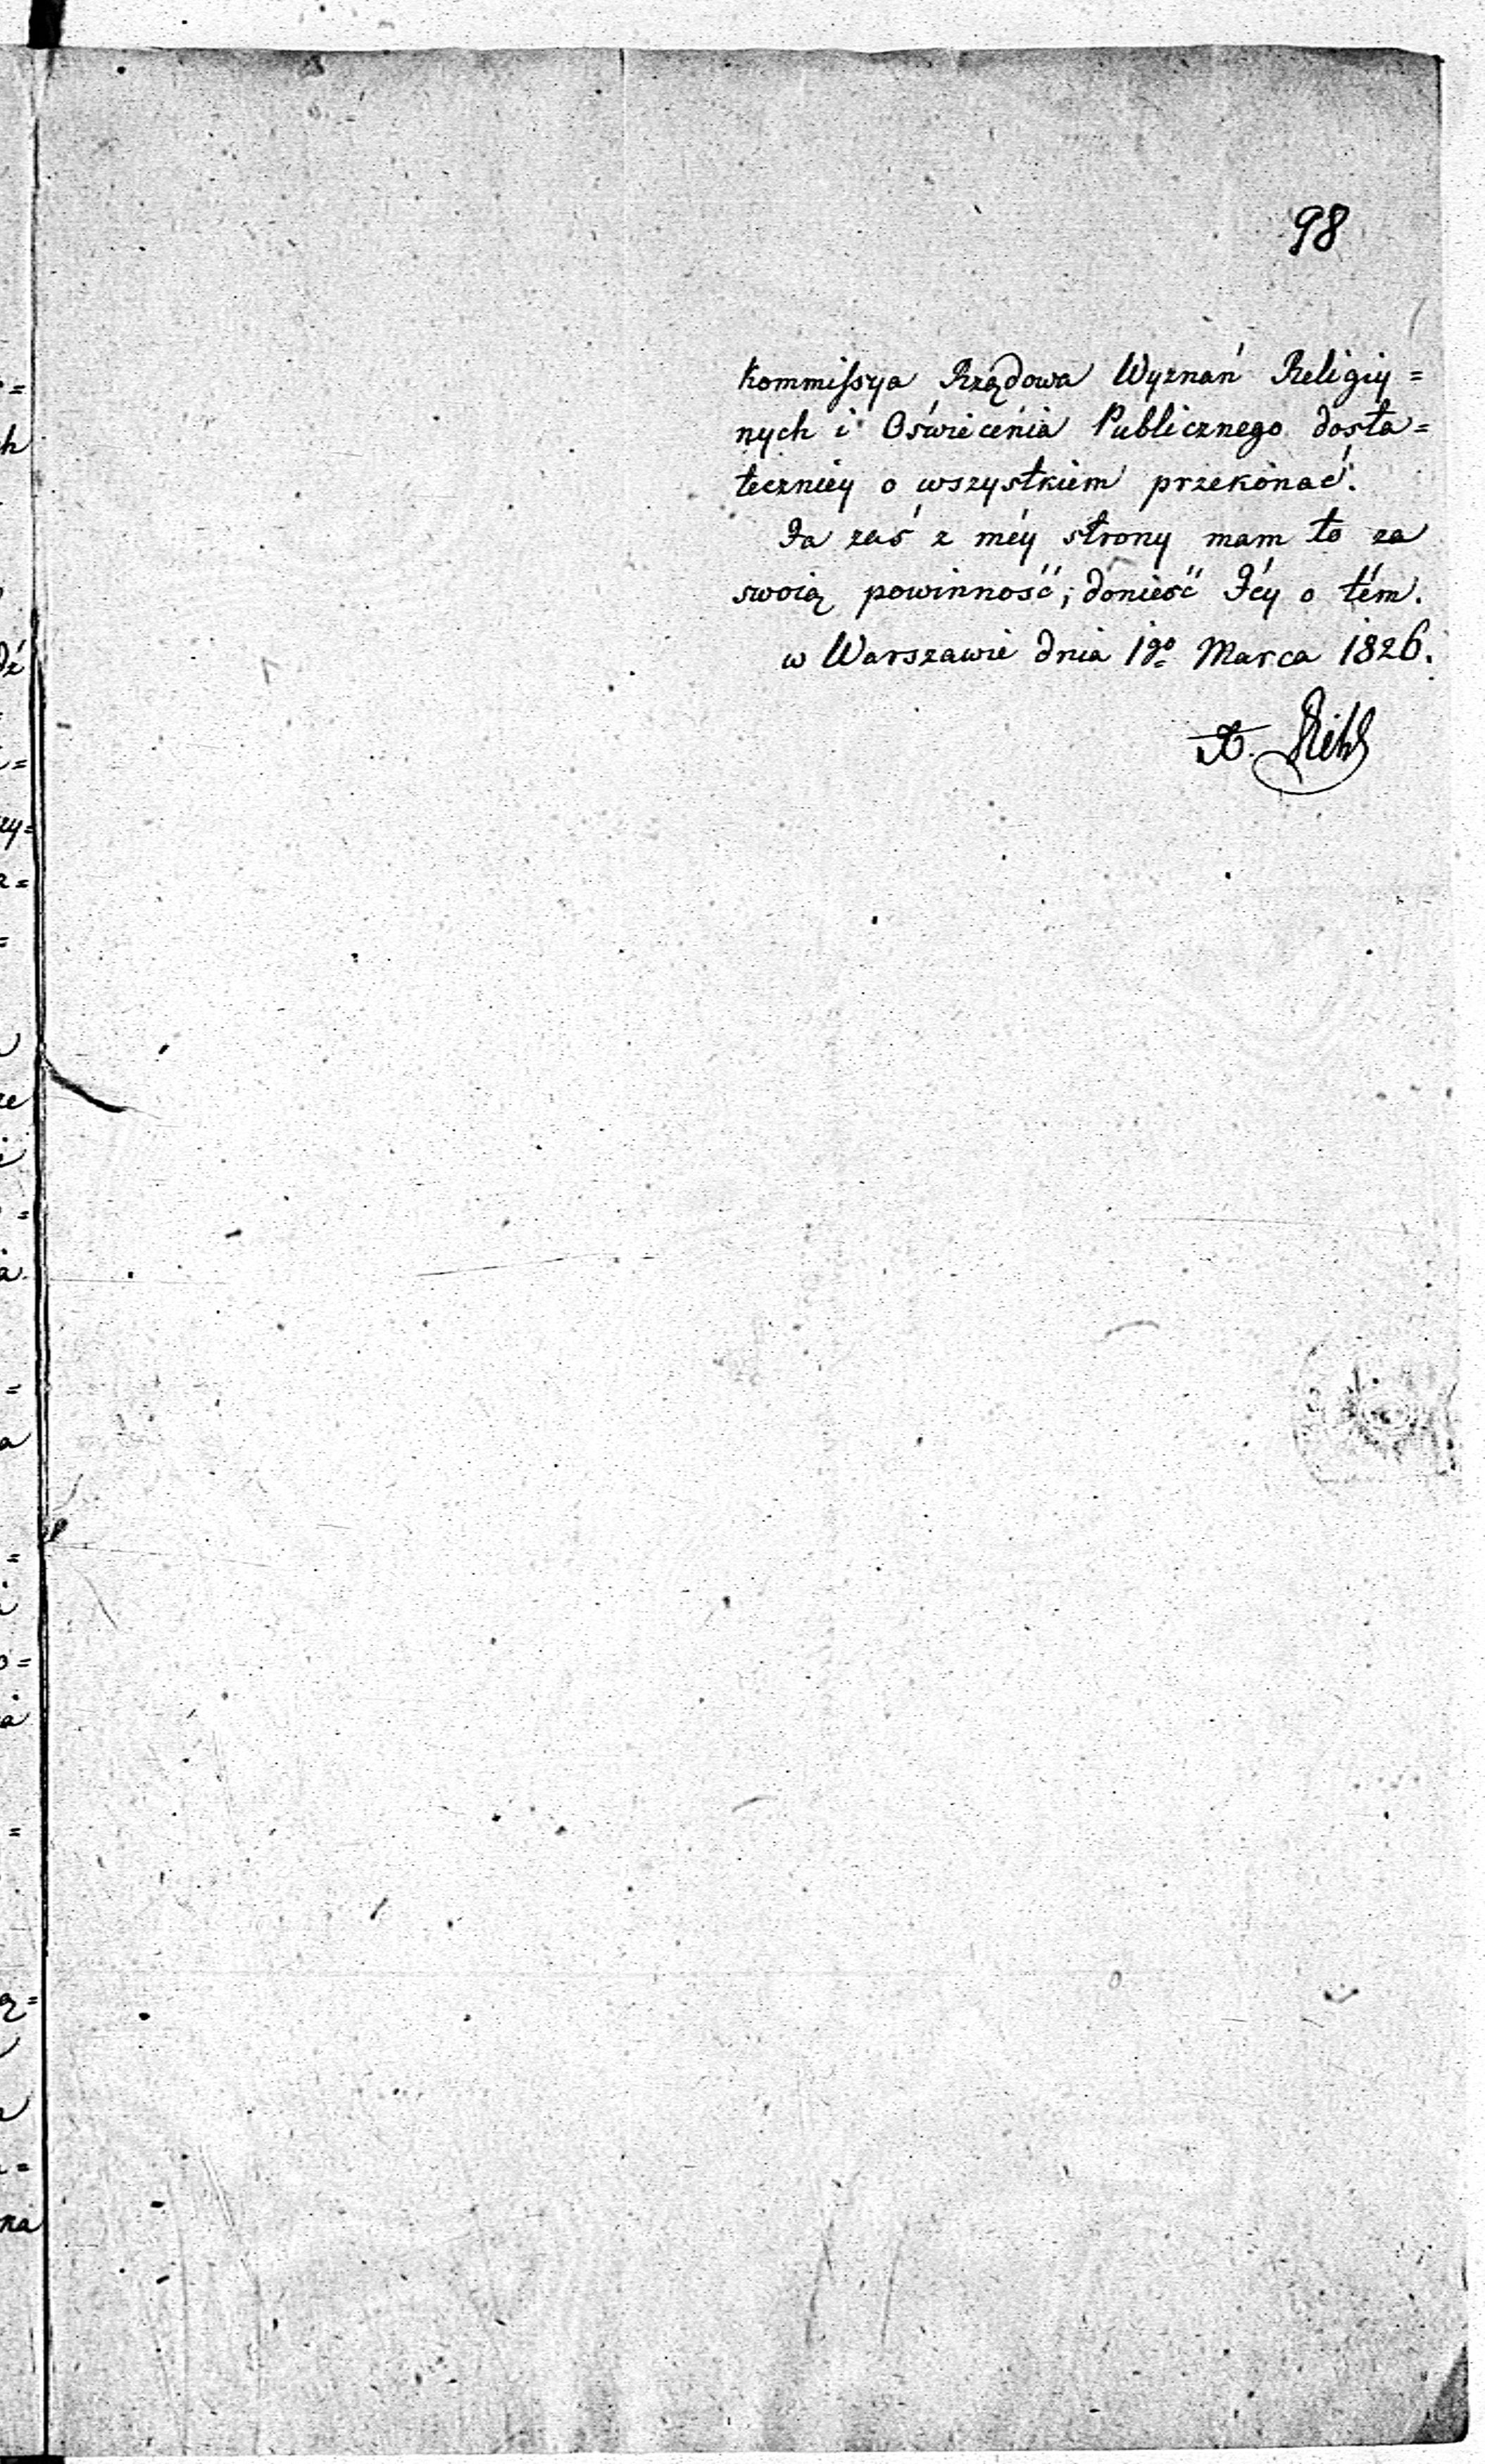 98
Kommissya Rządowa Wyznań Religiy=
nych i Oświecenia Publicznego dosta=
teczniey o wszystkiem przekonać.
Ja zaś z méy strony mam to za
swoią powinność, donieść Jéy o tém.
w Warszawie dnia 1go Marca 1826.